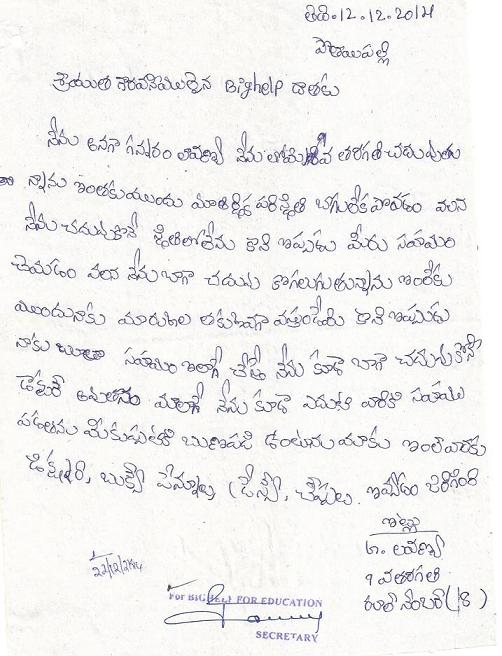 తేది.12.12.2014
పోతాయిపల్లి
శ్రీయుత గౌరవనీయులైన BigHelp దాతలు
నేను అనగా గన్నారం లావణ్య నేను తరగతి చదువుతు
న్నాను ఇంతకుముందు మా ఆర్థిక పరిస్థితి బాగులేక పోవడం వలన
నేను చదువుకొనే స్థితిలో లేను కాని ఇప్పుడు మీరు సహయం
చెయడం వలన నేను బాగా చదువు కొగలుగుతున్నాను ఇంతకు
ముందు నాకు మార్కులు తకువగా వచ్చేవి కాని ఇప్పుడు
నాకు సహయం ఇలాగే చేస్తే నేను కూడా బాగా చదువుకొని
డాక్టర్ అవుతాను మీలాగే నేను కూడా ఎదుటి వారికి సహయ
పడతాను మీకు ఋణపడి ఉంటాను మాకు ఇంతవరకు
డిక్షనరి, బుక్స్ పెన్నులు, డ్రెస్స్, చెప్పులు ఇవ్వడం జరిగింది
ఇట్లు
గ. లావణ్య
9 వ తరగతి
రూల్ నెంబర్ (18)
22/12/2014
For BIG HELP FOR EDUCATION
SECRETARY